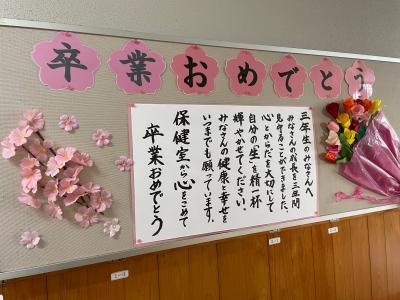 卒業おめでとう
三年生のみなさんへ
みなさんの成長を三年間
見守ることができました。
心とからだを大切にして
自分の生を精一杯
輝やかせてください。
みなさんの健康と幸せを
いつまでも願っています。
保健室から心をこめて
卒業おめでとう